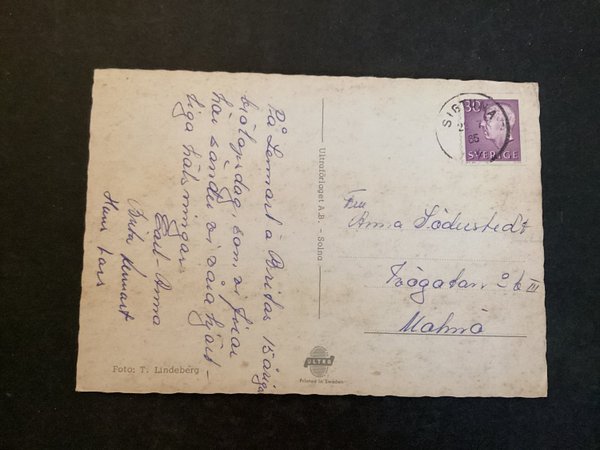 På Lennart å Britas 15 åriga
bröllopsdag, som vi firar
här sänder vi våra hjärt-
liga hälsningar
Carl Anna
Brita Lennart
Hans Lars
Foto: T. Lindeberg
Ultraförlaget A.B. - Solna
ULTRA
Printed in Sweden
SIGTUNA
65
30
SVERIGE
Fru
Anna Söderstedt
Malmö